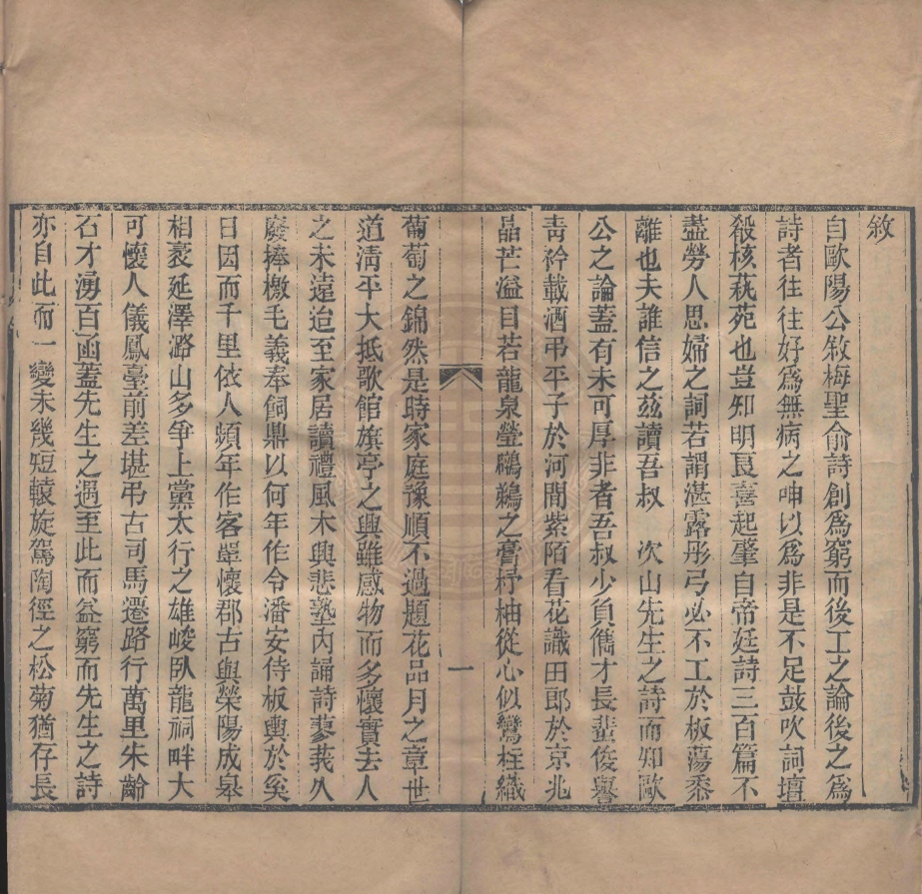 敘
自歐陽公敘梅聖俞詩創爲窮而後工之論後之爲
詩者往往好爲無病之呻以爲非是不足鼓吹詞壇
殽核萟苑也豈知明良喜起肇自帝廷詩三百篇不
盡勞人思婦之詞若謂湛露彤弓必不工於板蕩黍
離也夫誰信之茲讀吾叔 次山先生之詩而知歐
公之論蓋有未可厚非者吾叔少負儁才長蜚俊譽
靑衿載酒弔平子於河間紫陌看花識田郎於京兆
晶芒溢目若龍泉瑩鷿鵜之膏杼柚從心似鸞柱織
一
葡萄之錦然是時家庭豫順不過題花品月之章世
道淸平大抵歌館旗亭之興雖感物而多懷實去人
之未遠迨至家居讀禮風木興悲塾內誦詩蓼莪久
廢捧檄毛義奉飼鼎以何年作令潘安侍板輿於奚
日因而千里依人頻年作客覃懷郡古與滎陽成皋
相袤延澤潞山多爭上黨太行之雄峻臥龍祠畔大
可懷人儀鳳臺前差堪弔古司馬遷路行萬里朱齡
石才湧百函蓋先生之遇至此而益窮而先生之詩
亦自此而一變未幾短轅旋駕陶徑之松菊猶存長